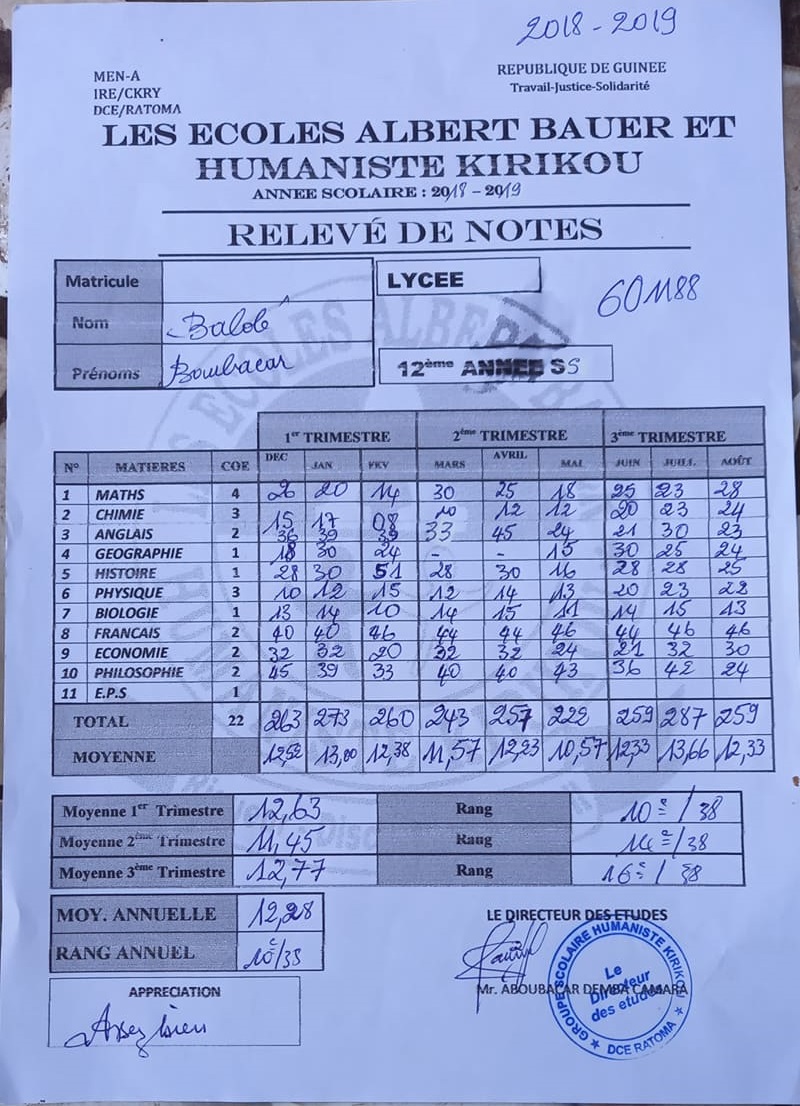 2018 - 2019
MEN-A
IRE/CKRY
DCE/RATOMA
REPUBLIQUE DE GUINEE
Travail-Justice-Solidarité
LES ECOLES ALBERT BAUER ET
HUMANISTE KIRIKOU
ANNEE SCOLAIRE : 2018 - 2019
RELEVÉ DE NOTES
Matricule
LYCEE
601188
Nom Baldé
Prénoms Boubacar
12ème ANNEE SS
1er TRIMESTRE 2ème TRIMESTRE 3ème TRIMESTRE
N° MATIERES COE DEC JAN FEV MARS AVRIL MAI JUIN JUILL AOÛT
1 MATHS 4 26 20 14 30 25 18 25 23 28
2 CHIMIE 3 15 17 08 10 12 12 20 23 24
3 ANGLAIS 2 36 39 39 33 45 24 21 30 23
4 GEOGRAPHIE 1 18 30 24 - - 15 30 25 24
5 HISTOIRE 1 28 30 51 28 30 16 28 28 25
6 PHYSIQUE 3 10 12 15 12 14 13 20 23 22
7 BIOLOGIE 1 13 14 10 14 15 11 14 15 13
8 FRANCAIS 2 40 40 46 44 44 46 44 46 46
9 ECONOMIE 2 32 32 20 32 32 24 21 32 30
10 PHILOSOPHIE 2 45 39 33 40 40 43 36 42 24
11 E.P.S 1
TOTAL 22 263 273 260 243 257 222 259 287 259
MOYENNE 12,52 13,00 12,38 11,57 12,23 10,57 12,33 13,66 12,33
Moyenne 1er Trimestre 12,63 Rang 10e / 38
Moyenne 2ème Trimestre 11,45 Rang 14e / 38
Moyenne 3ème Trimestre 12,77 Rang 16e / 38
MOY. ANNUELLE 12,28
RANG ANNUEL 10e/38
LE DIRECTEUR DES ETUDES
Mr. ABOUBACAR DEMBA CAMARA
GROUPE SCOLAIRE HUMANISTE KIRIKOU
Le
Directeur
des etudes
DCE RATOMA
APPRECIATION
Assez bien